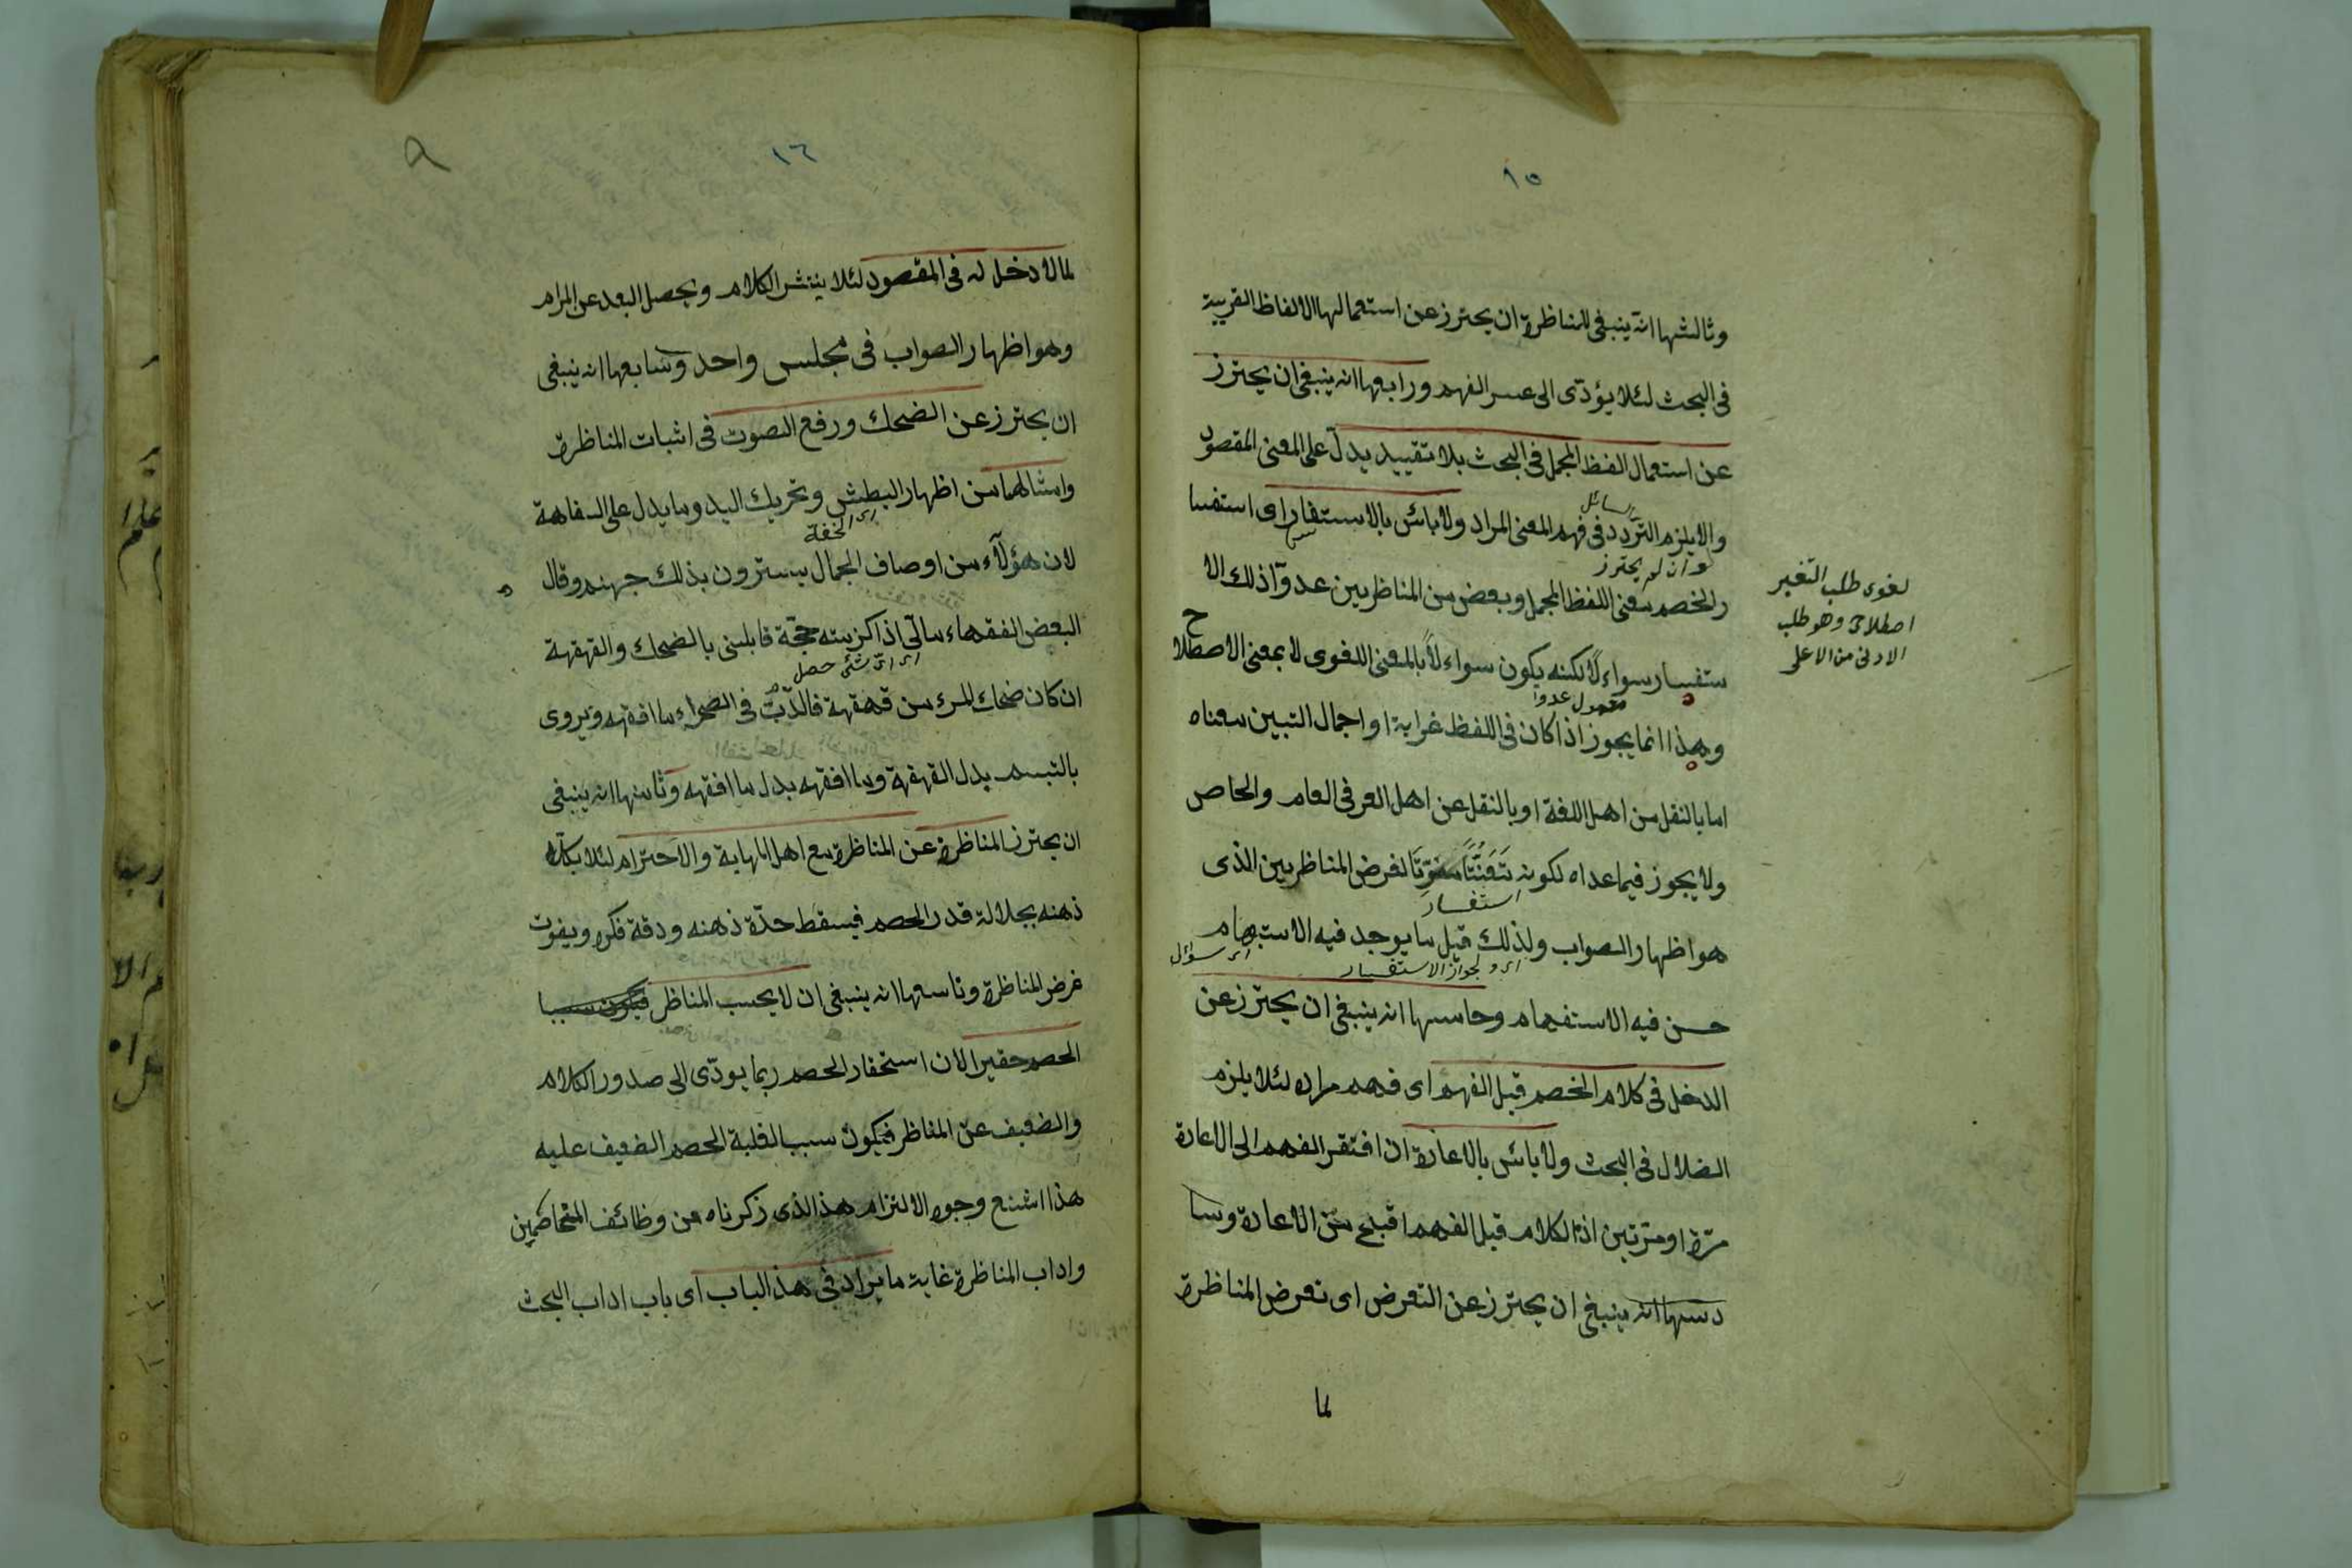 ١٥
وثالثها انه ينبغى للمناظرة ان يحترز عن استعمالها الالفاظ القريبة
فى البحث لئلا يؤدّى الى عسر الفهم ورابعها انه ينبغى ان يحترز
عن استعمال الفظ المجمل فى البحث بلا تقييد يدل على المعنى المقصود
السائل
والا يلزم التردد فى فهم المعنى المراد ولا باس بالاستفسار اى استفسا
وان لم يحترز
ر الخصم معنى اللفظ المجمل وبعض من المناظريين عدوا ذلك الا
ستفسار سواءلا لكنه يكون سواءلا بالمعنى اللغوى لا بمعنى الاصطلاح
مفعول عدوا
وهذا انما يجوز اذا كان فى اللفظ غرابة او اجمال التبين معناه
اما بالنقل من اهل اللغة او بالنقل عن اهل العرفى العام والخاص
ولا يجوز فيما عداه لكونه تَعَنُّتًا مفوّتًا لغرض المناظريين الذى
استفسار
هو اظهار الصواب ولذلك قيل ما يوجد فيه الاستبهام
اى ولجواز الاستفسار اى سؤال
حسن فيه الاستفهام وخامسها انه ينبغى ان يحترز عن
الدخل فى كلام الخصم قبل الفهم اى فهم مراده لئلا يلزم
الضلال فى البحث ولا باس بالاعادة ان افتقر الفهم الى الاعادة
مرّة او مرّتين اذ الكلام قبل الفهم اقبح من الاعادة وسا
دسها انه ينبغى ان يحترز عن التعرض اى تعرض المناظرة
لما
لغوى طلب التغير
اصطلاحى وهو طلب
الادنى من الاعلى
١٦
٩
لما لا دخل له فى المقصود لئلا ينتشر الكلام ويحصل البعد عن المرام
وهو اظهار الصواب فى مجلس واحد وسابعها انه ينبغى
ان يحترز عن الضحك ورفع الصوت فى اثبات المناظرة
وامثالهما من اظهار البطش وتحريك اليد وما يدل على السفاهة
اى الخفة
لان هؤلآء من اوصاف الجهال يسترون بذلك جهلهم وقال
البعض الفقهاء مالى اذا كزبيته حجّة قابلنى بالضحك والقهقهة
اى اىّ شئ حصل
ان كان ضحك المرء من قهقهة فالدّب فى الصحراء ما افقهه ويروى
بالتبسم بدل القهقهة وما افقهه بدل ما افقهه وثامنها انه ينبغى
ان يحترز المناظرة عن المناظرة مع اهل المهابة والاحترام لئلا
ذهنه بجلالة قدر الخصم فيسقط حدّة ذهنه ودقة فكره ويفوت
غرض المناظرة وتاسعها انه ينبغى ان لا يحسب المناظر فيكون سببا
الخصم حقيرا لان استحقار الخصم ربما يودّى الى صدور الكلام
والضعيف عن المناظر فيكون سببا لغلبة الخصم الضعيف عليه
هذا اشنع وجوه الالتزام هذ الذى زكرناه من وظائف المتخاصمين
واداب المناظرة غاية ما يراد فى هذ الباب اى باب اداب البحث